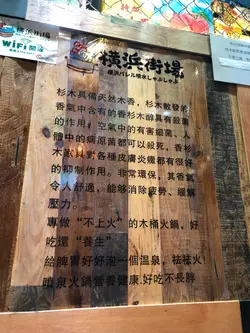 横浜街場
WiFi開放
横浜街場
横浜バレル噴水しゃぶしゃぶ
杉木具備天然木香，杉木散發的
香氣中含有的香杉木醇具有殺菌
的作用，空氣中的有害細菌、人
體中的病原菌都可以殺死，香杉
木炭具對各種皮膚炎幾都有很好
的抑制作用。非常環保，其香氣
令人舒適，能够消除疲勞、緩解
壓力。
專做“不上火”的木桶火鍋，好
吃還“養生”
給脾胃好好泡一個温泉，祛祛火！
噴泉火鍋營養健康.好吃不長胖